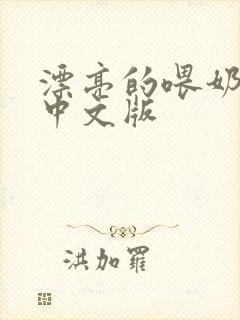 漂亮的喂奶
中文版
洪加羅